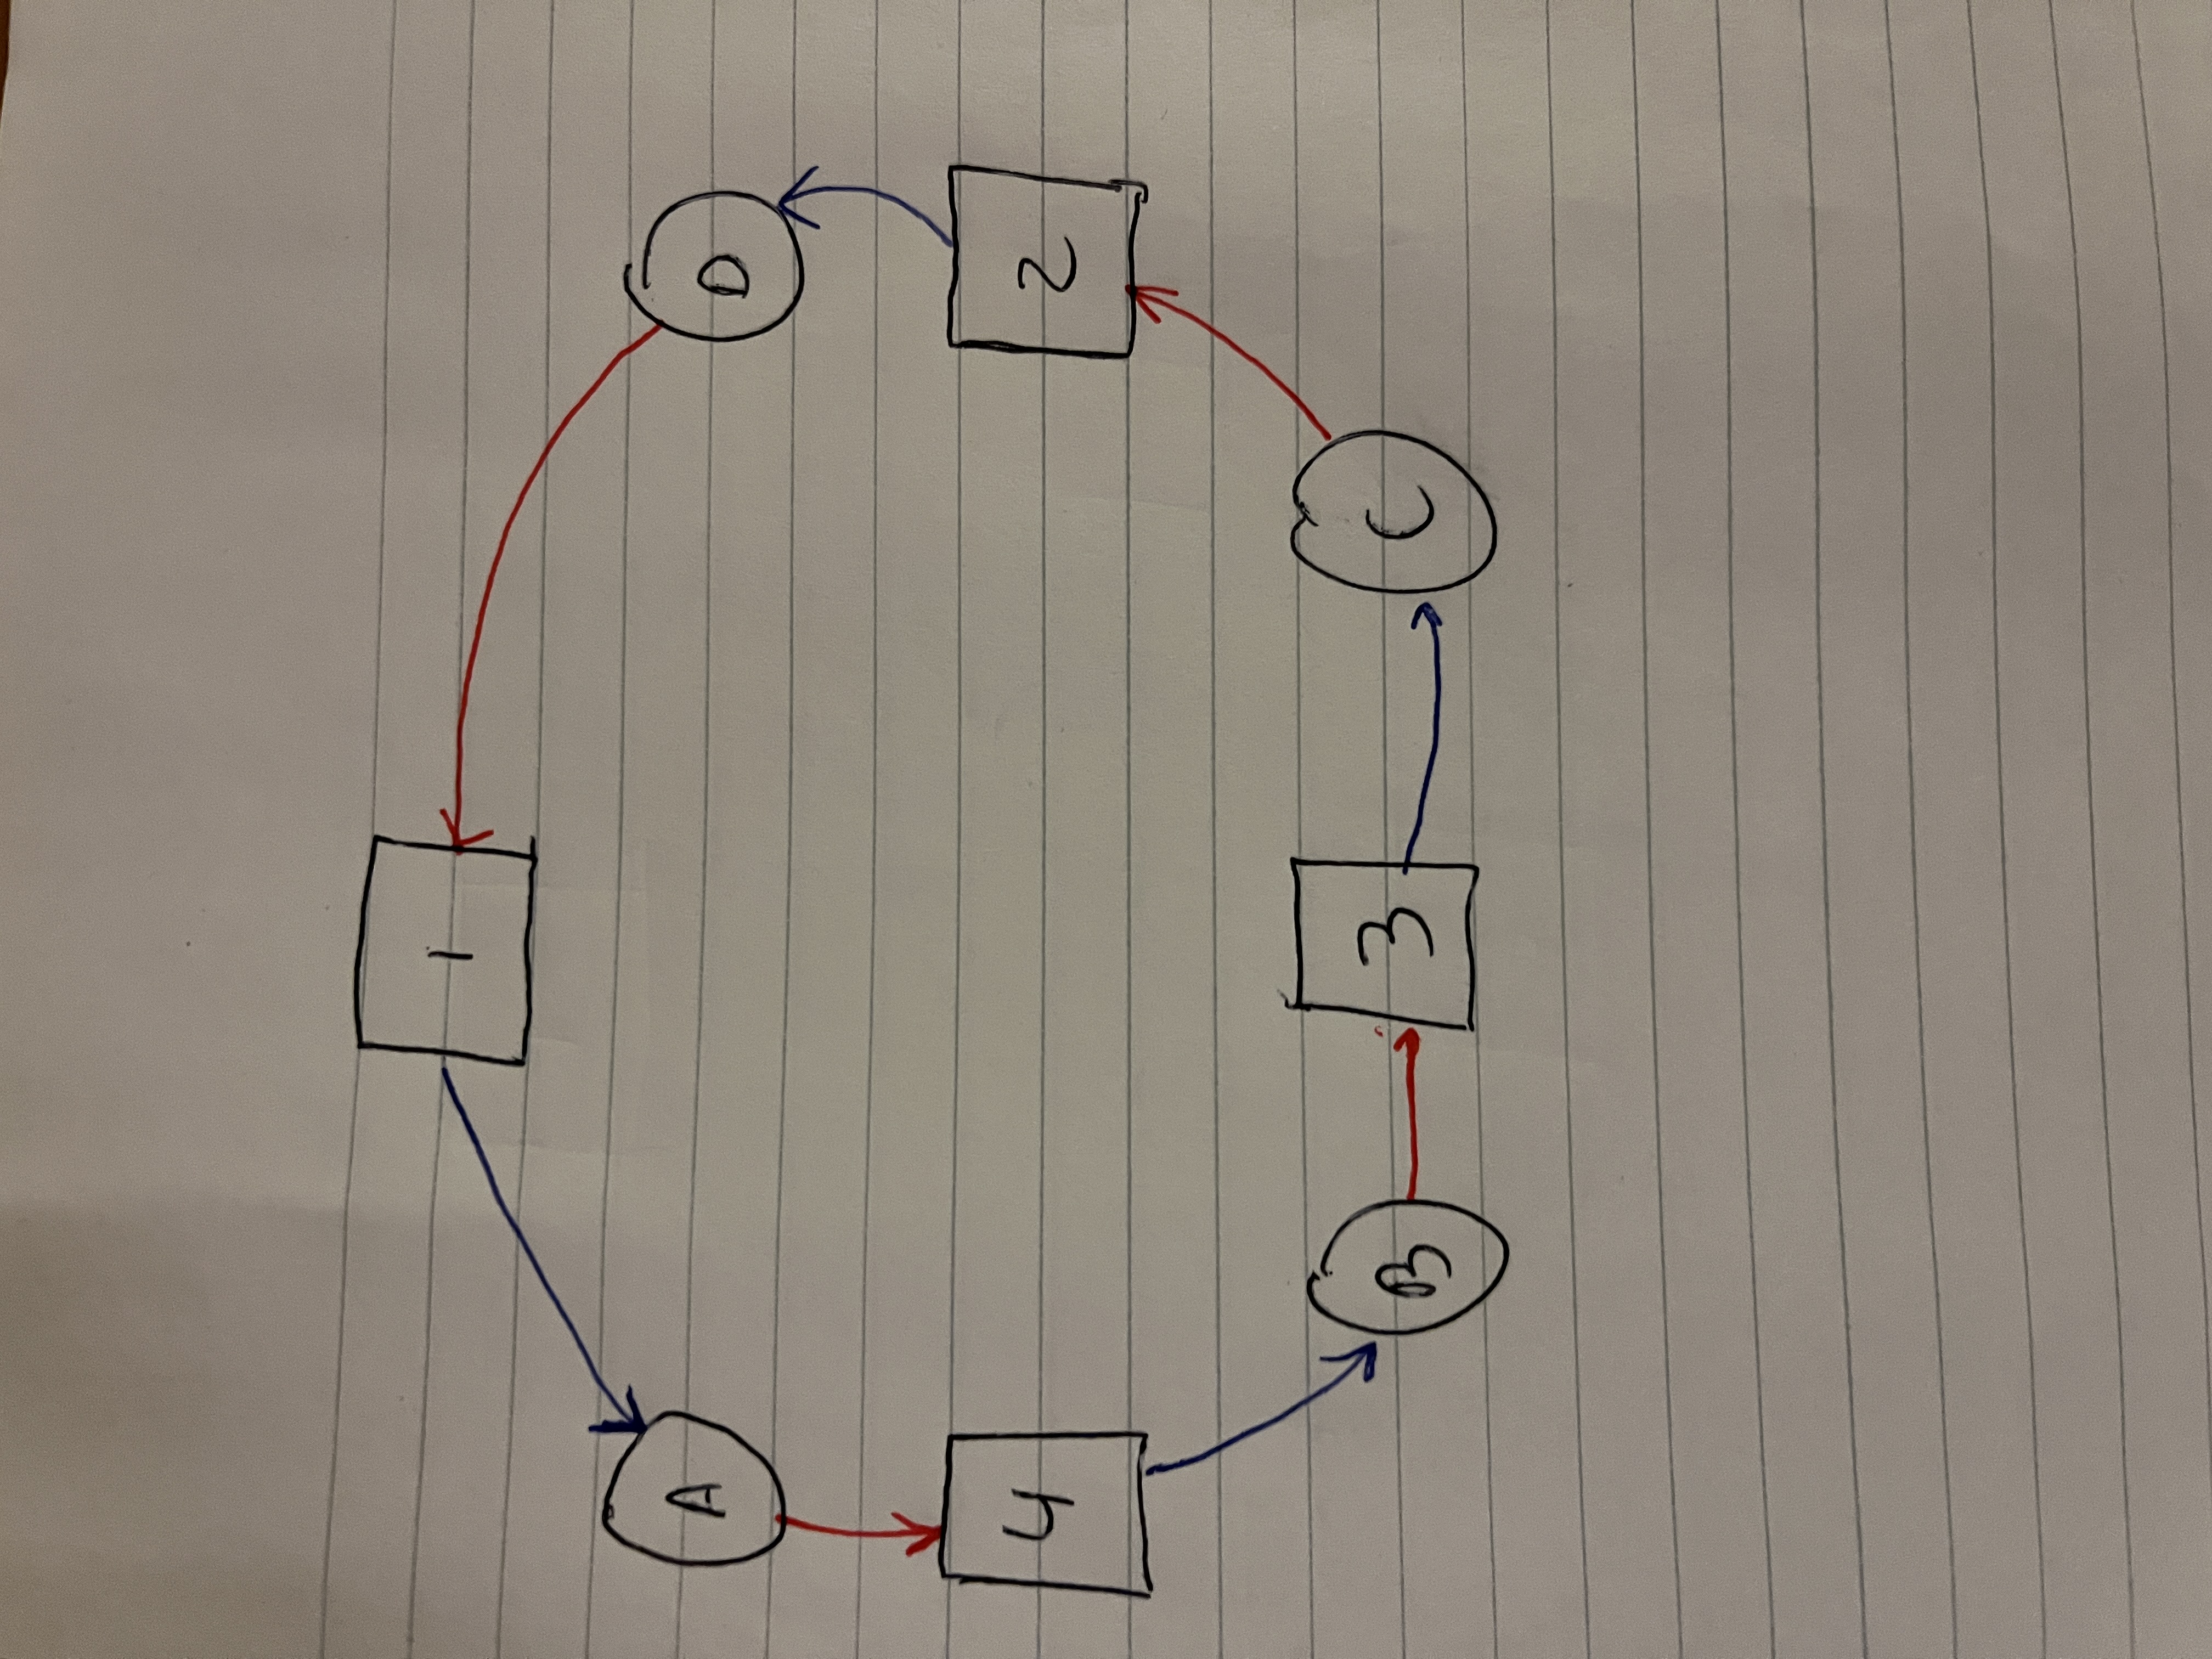 1
A
D
4
2
B
3
C